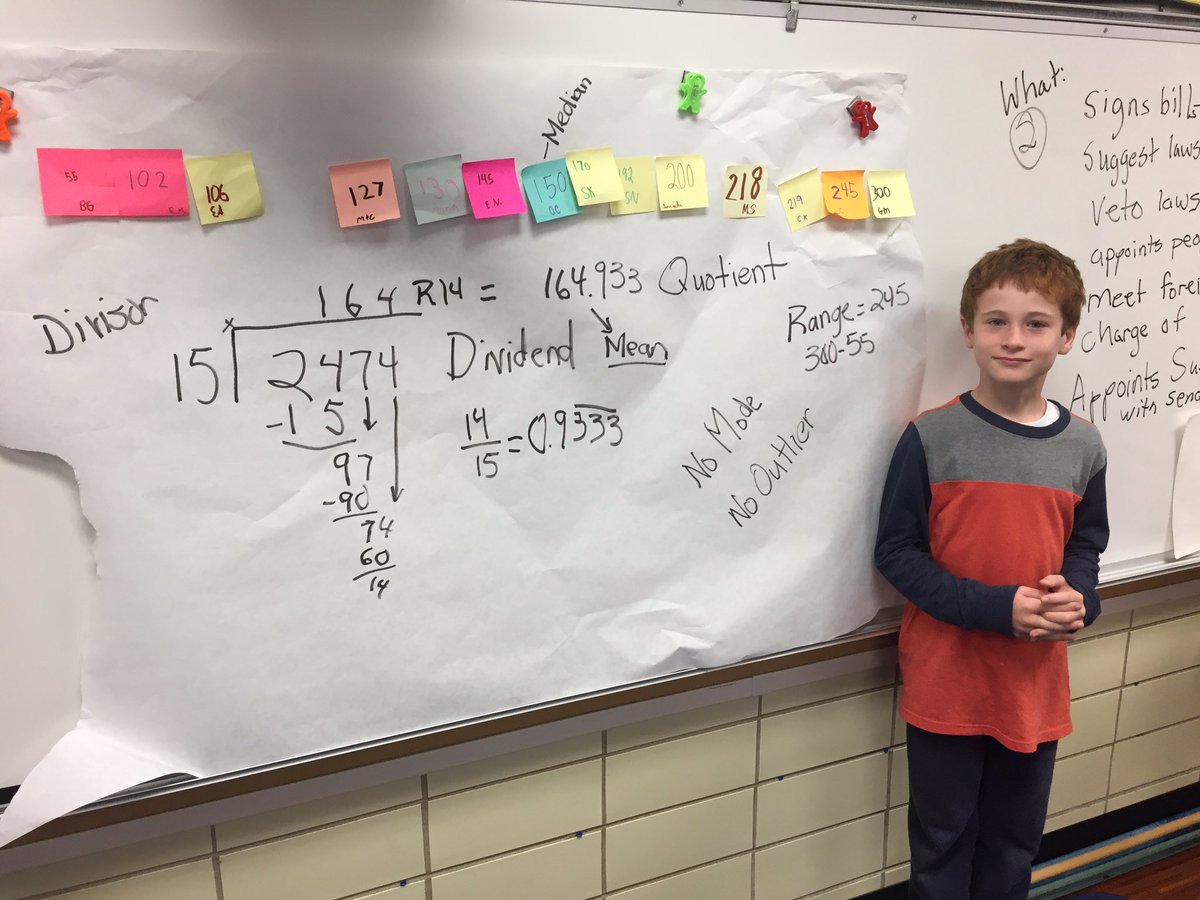 Median
55
BG
102
106
EA
127
MAC
139
145
E.N.
150
OC
170
SK
192
SN
200
218
MS
219
CK
245
300
GM
Divisor
164 R14 = 164.933 Quotient
15 2474 Dividend Mean
-15
97
-90
74
60
14
14/15 = 0.9333
Range = 245
300-55
No Mode
No Outlier
What:
2
Signs bills
Suggest laws
Veto laws
appoints
meet
charge of
Appoints
with